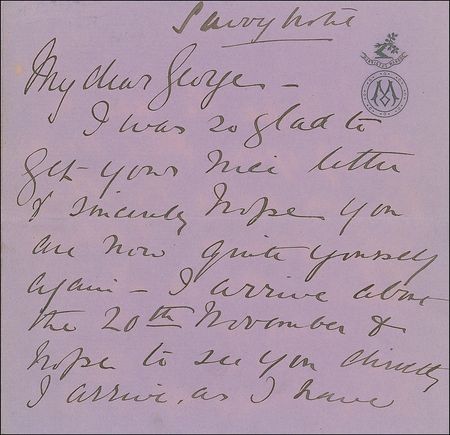 Savoy Hotel
My dear George –
I was so glad to
get your nice letter
& sincerely hope you
are now quite yourself
again – I arrive about
the 20th November &
hope to see you directly
I arrive, as I have